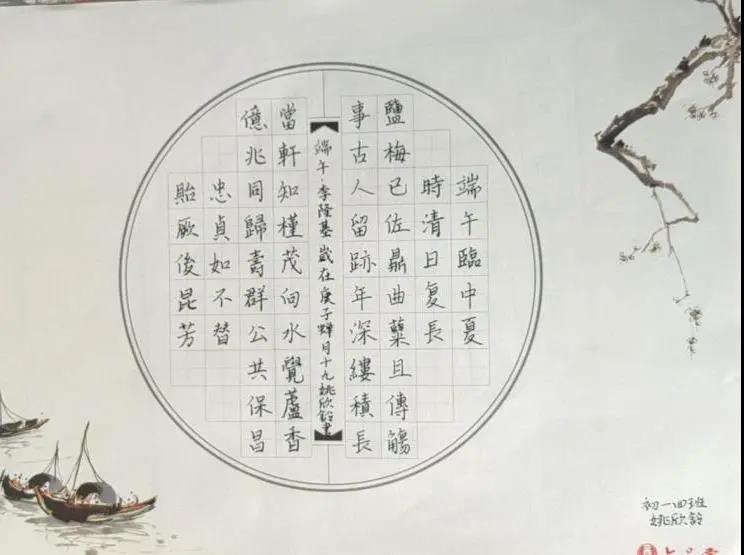 端午臨中夏
時清日复長
鹽梅已佐鼎曲糵且傳觴
事古人留跡年深縷積長
端午·李隆基 歲在庚子蟬月十九姚欣鈴書
當軒知槿茂向水覺蘆香
億兆同歸壽群公共保昌
忠貞如不替
貽厥俊昆芳
初一四班
姚欣鈴